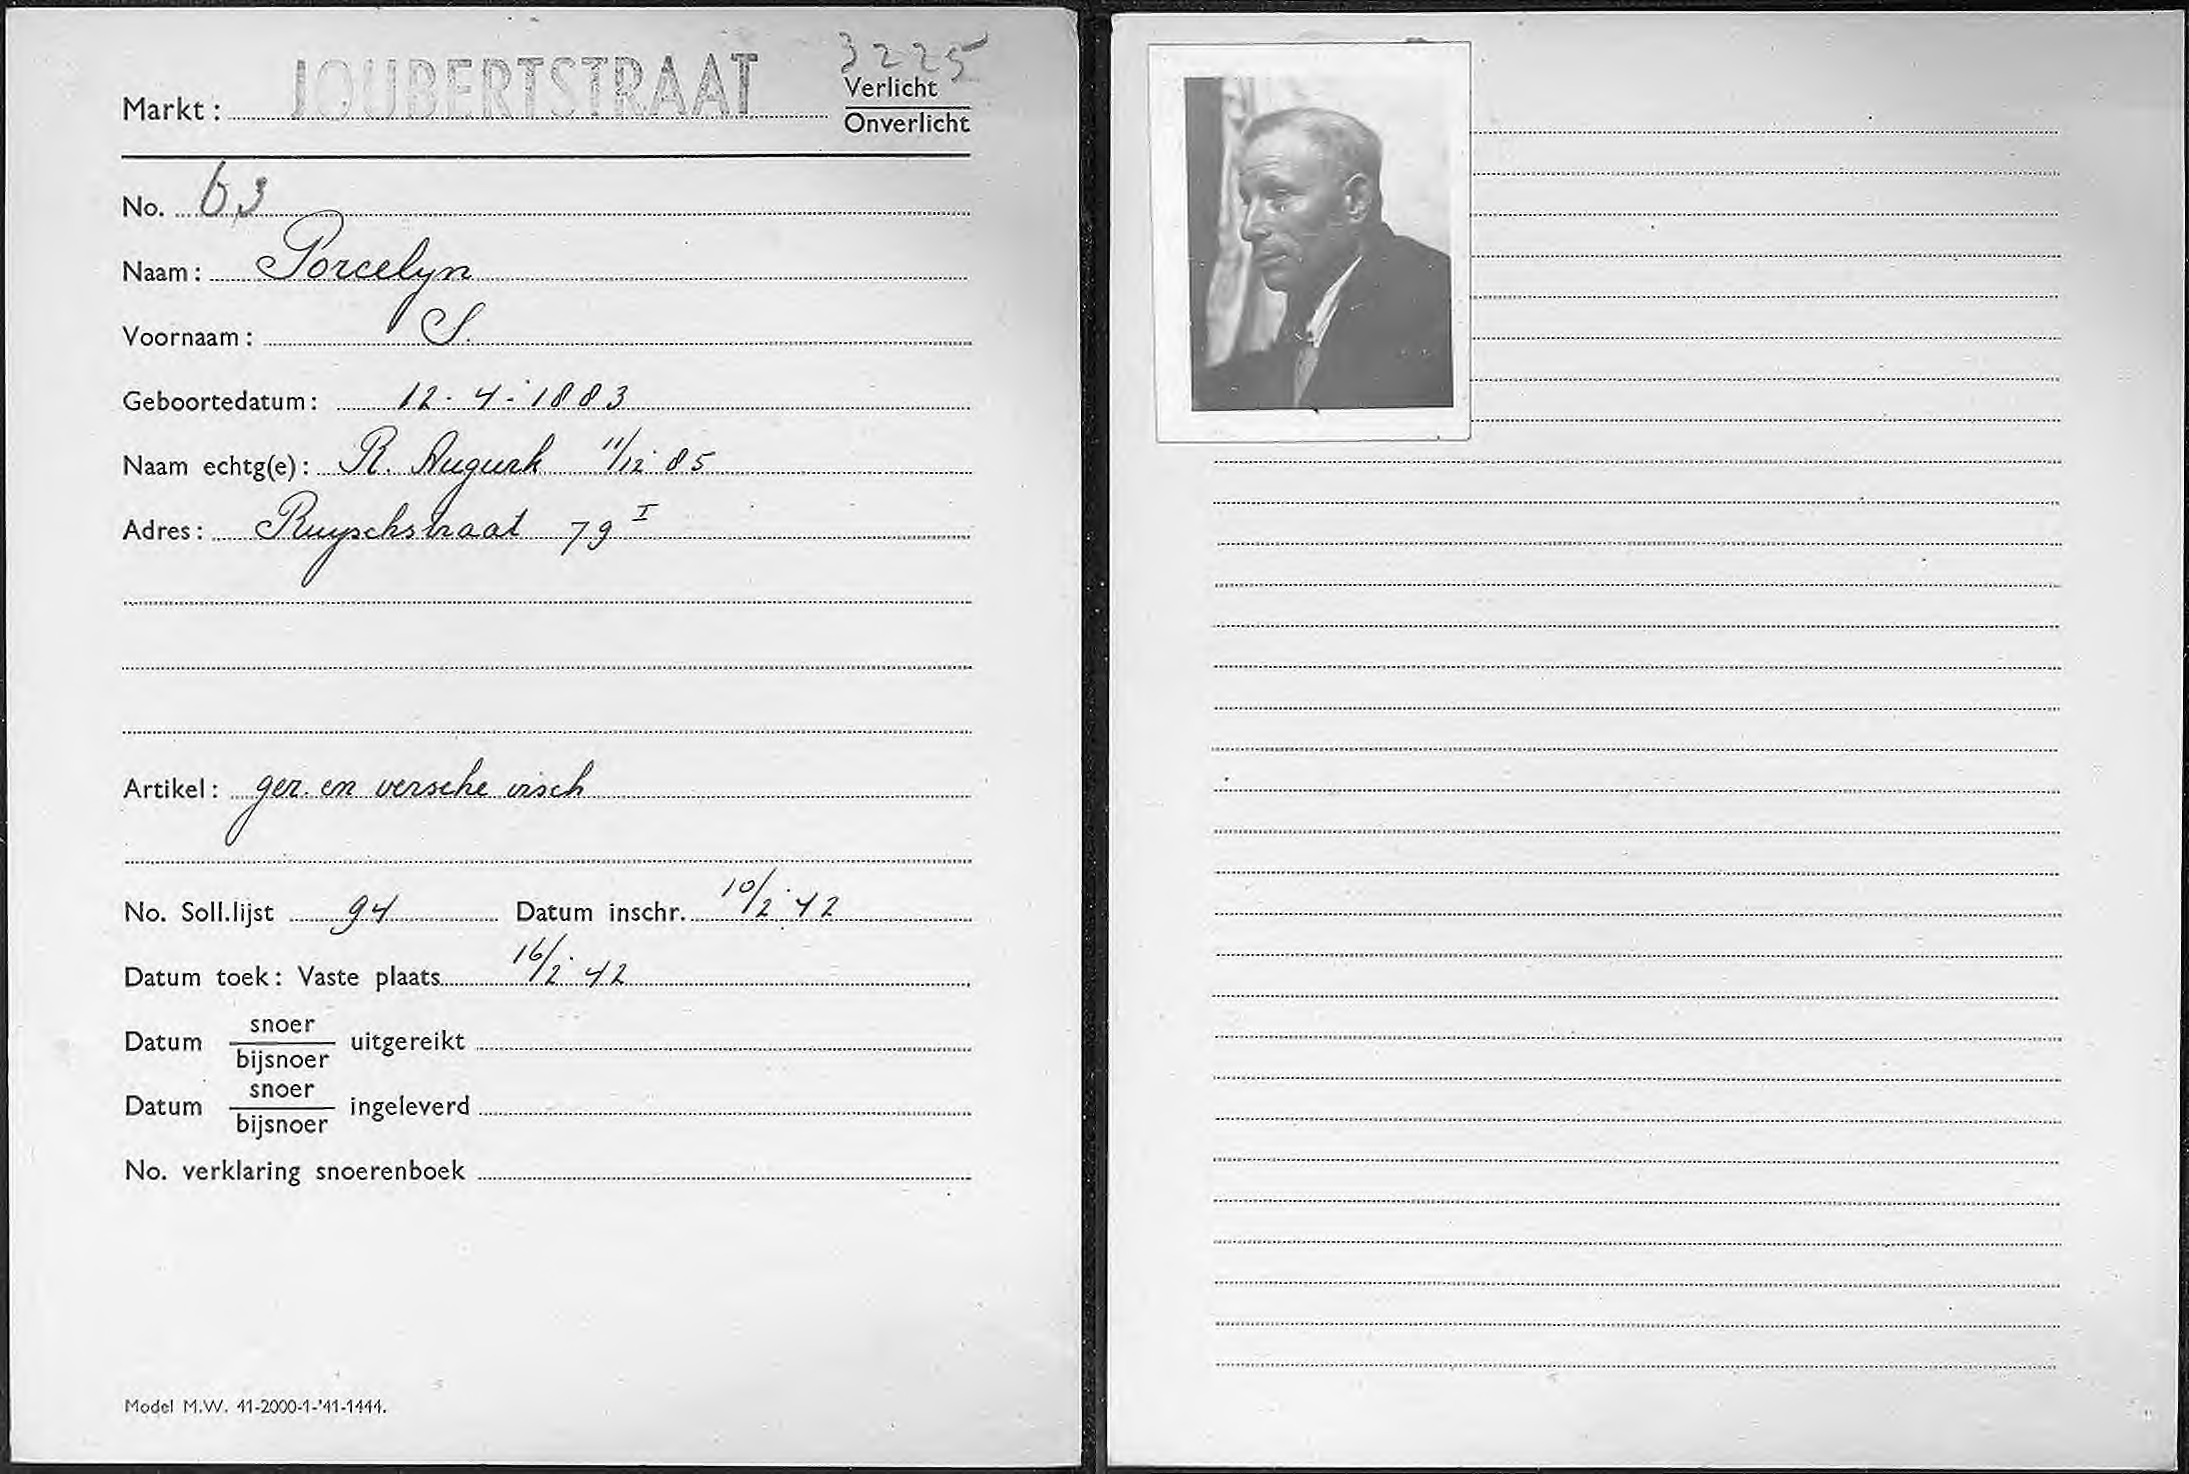 3225
Markt: JOUBERTSTRAAT Verlicht
Onverlicht
No. 63
Naam: Porcelyn
Voornaam: S.
Geboortedatum: 12-4-1883
Naam echtg(e): R. Augurk 11/12 85
Adres: Ruyschstraat 79 I
Artikel: ger. en versche visch
No. Soll.lijst 94 Datum inschr. 10/2 '42
Datum toek: Vaste plaats 16/2 '42
Datum snoer uitgereikt
bijsnoer
Datum snoer ingeleverd
bijsnoer
No. verklaring snoerenboek
Model M.W. 41-2000-1-'41-1444.